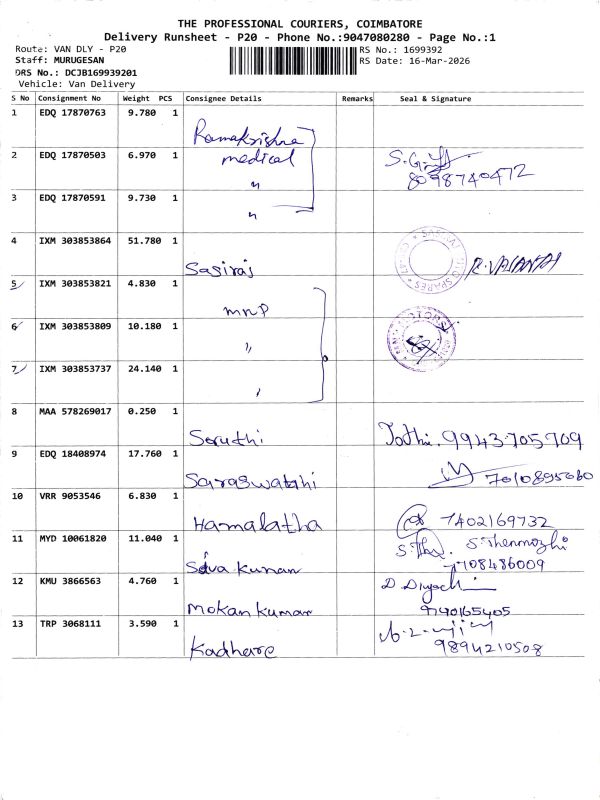 THE PROFESSIONAL COURIERS, COIMBATORE
Delivery Runsheet - P20 - Phone No.:9047080280 - Page No.:1
Route: VAN DLY - P20 RS No.: 1699392
Staff: MURUGESAN RS Date: 16-Mar-2026
DRS No.: DCJB169939201
Vehicle: Van Delivery
S No Consignment No Weight PCS Consignee Details Remarks Seal & Signature
1 EDQ 17870763 9.780 1
Ramakrishna
2 EDQ 17870503 6.970 1 medical
8098740472
"
3 EDQ 17870591 9.730 1
"
4 IXM 303853864 51.780 1
Sasiraj R. VASANTHI
5 IXM 303853821 4.830 1
mnp
6 IXM 303853809 10.180 1
"
7 IXM 303853737 24.140 1
"
8 MAA 578269017 0.250 1
Sruthi Jothi. 9943705709
9 EDQ 18408974 17.760 1
Saraswathi 7010895060
10 VRR 9053546 6.830 1
Hamalatha 7402169732
11 MYD 10061820 11.040 1 S. Thenmozhi
Siva kumar 7108486009
12 KMU 3866563 4.760 1
Mokan kumar 9740165405
13 TRP 3068111 3.590 1
Kadhare 9894210508